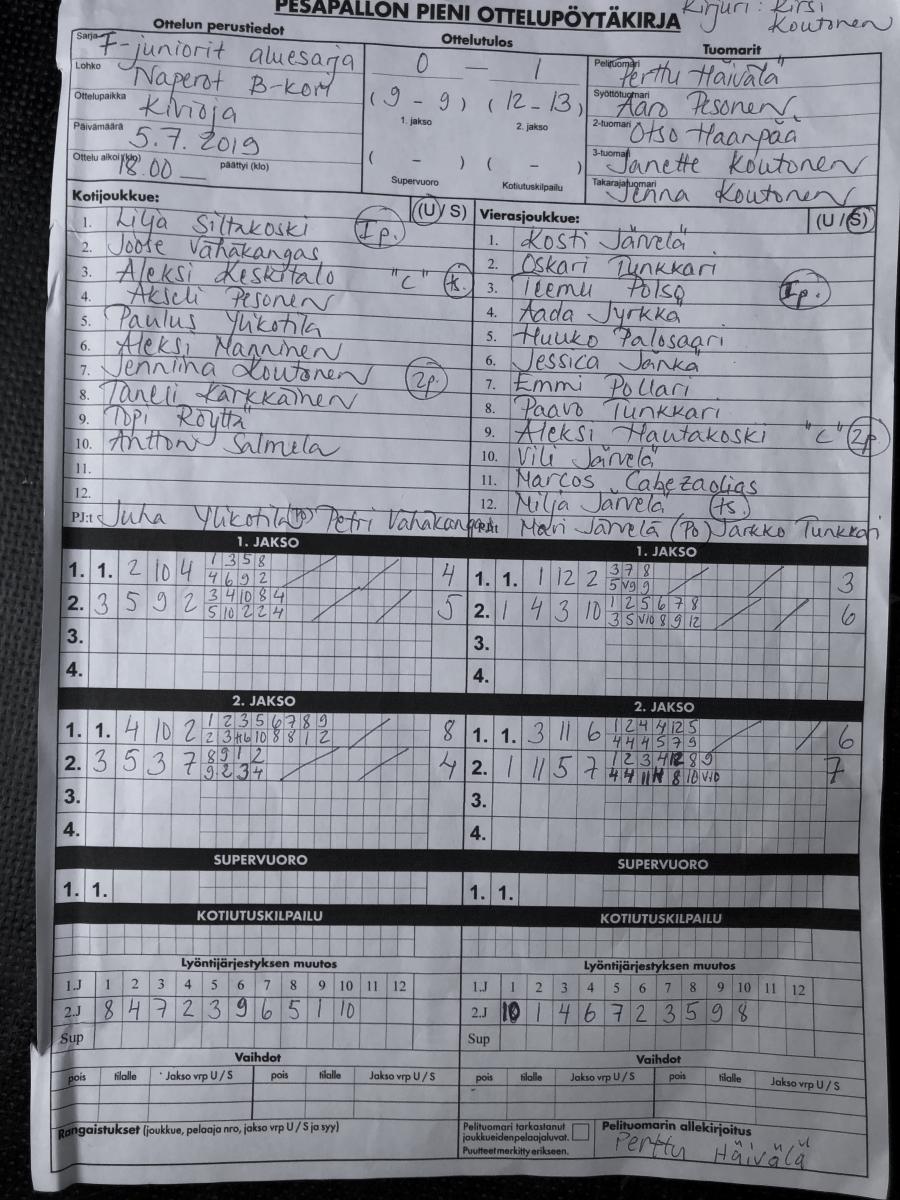 PESÄPALLON PIENI OTTELUPÖYTÄKIRJA
Kirjuri: Kirsi
Koutonen
Ottelun perustiedot
Sarja F-juniorit aluesarja
Lohko Naperot B-kon
Ottelupaikka Kivioja
Päivämäärä 5.7.2019
Ottelu alkoi (klo) 18.00 päättyi (klo)
Ottelutulos
0 — 1
(9 - 9) (12 - 13)
1. jakso 2. jakso
( - ) ( - )
Supervuoro Kotiutuskilpailu
Tuomarit
Pelituomari Perttu Häivälä
Syöttötuomari Aaro Pesonen
2-tuomari Otso Haanpää
3-tuomari Janette Koutonen
Takarajatuomari Jenna Koutonen
Kotijoukkue: (U/S)
1. Lilja Siltakoski Ip.
2. Joose Vähäkangas
3. Aleksi Keskitalo "C" ts.
4. Akseli Pesonen
5. Paulus Ylikotila
6. Aleksi Manninen
7. Jenniina Koutonen 2p.
8. Taneli Kärkkäinen
9. Topi Röyttä
10. Antton Salmela
11.
12.
PJ:t Juha Ylikotila (PO) Petri Vähäkangas
Vierasjoukkue: (U/S)
1. Kosti Järvelä
2. Oskari Tunkkari
3. Teemu Polso Ip.
4. Aada Jyrkkä
5. Huuko Palosaari
6. Jessica Jänkä
7. Emmi Pollari
8. Paavo Tunkkari
9. Aleksi Hautakoski "C" 2p
10. Vili Järvelä
11. Marcos Cabezaolias
12. Milja Järvelä ts.
Mari Järvelä (PO) Jarkko Tunkkari
1. JAKSO
1. 1. 2 10 4 1 3 5 8 4
4 6 9 2
2. 3 5 9 2 3 4 10 8 4 5
5 10 2 2 4
3.
4.
1. JAKSO
1. 1. 1 12 2 3 7 8 3
5 V9 9
2. 1 4 3 10 1 2 5 6 7 8 6
3 5 V10 8 9 12
3.
4.
2. JAKSO
1. 1. 4 10 2 1 2 3 5 6 7 8 9 8
2 3 6 10 8 8 1 2
2. 3 5 3 7 8 9 1 2 4
9 2 3 4
3.
4.
2. JAKSO
1. 1. 3 11 6 1 2 4 4 12 5 6
4 4 4 5 7 9
2. 1 11 5 7 1 2 3 4 12 8 9 7
4 4 11 8 10 V10
3.
4.
SUPERVUORO
1. 1.
SUPERVUORO
1. 1.
KOTIUTUSKILPAILU
KOTIUTUSKILPAILU
Lyöntijärjestyksen muutos
1.J 1 2 3 4 5 6 7 8 9 10 11 12
2.J 8 4 7 2 3 9 6 5 1 10
Sup
Lyöntijärjestyksen muutos
1.J 1 2 3 4 5 6 7 8 9 10 11 12
2.J 10 1 4 6 7 2 3 5 9 8
Sup
Vaihdot
pois tilalle Jakso vrp U / S pois tilalle Jakso vrp U / S
Vaihdot
pois tilalle Jakso vrp U / S pois tilalle Jakso vrp U / S
Rangaistukset (joukkue, pelaaja nro, jakso vrp U / S ja syy)
Pelituomari tarkastanut
joukkueidenpelaajaluvat.
Puutteet merkitty erikseen.
Pelituomarin allekirjoitus
Perttu Häivälä